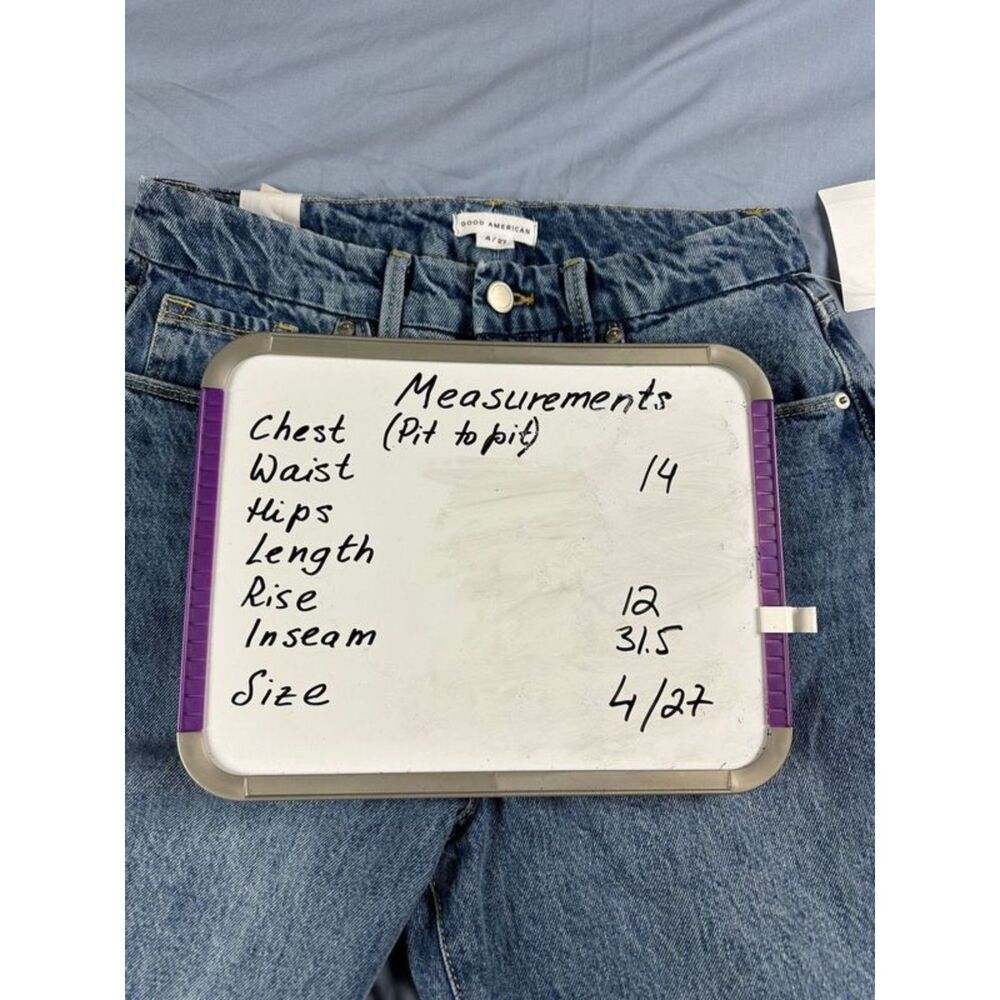 GOOD AMERICAN
4/27
Measurements
Chest (Pit to pit)
Waist 14
Hips
Length
Rise 12
Inseam 31.5
Size 4/27